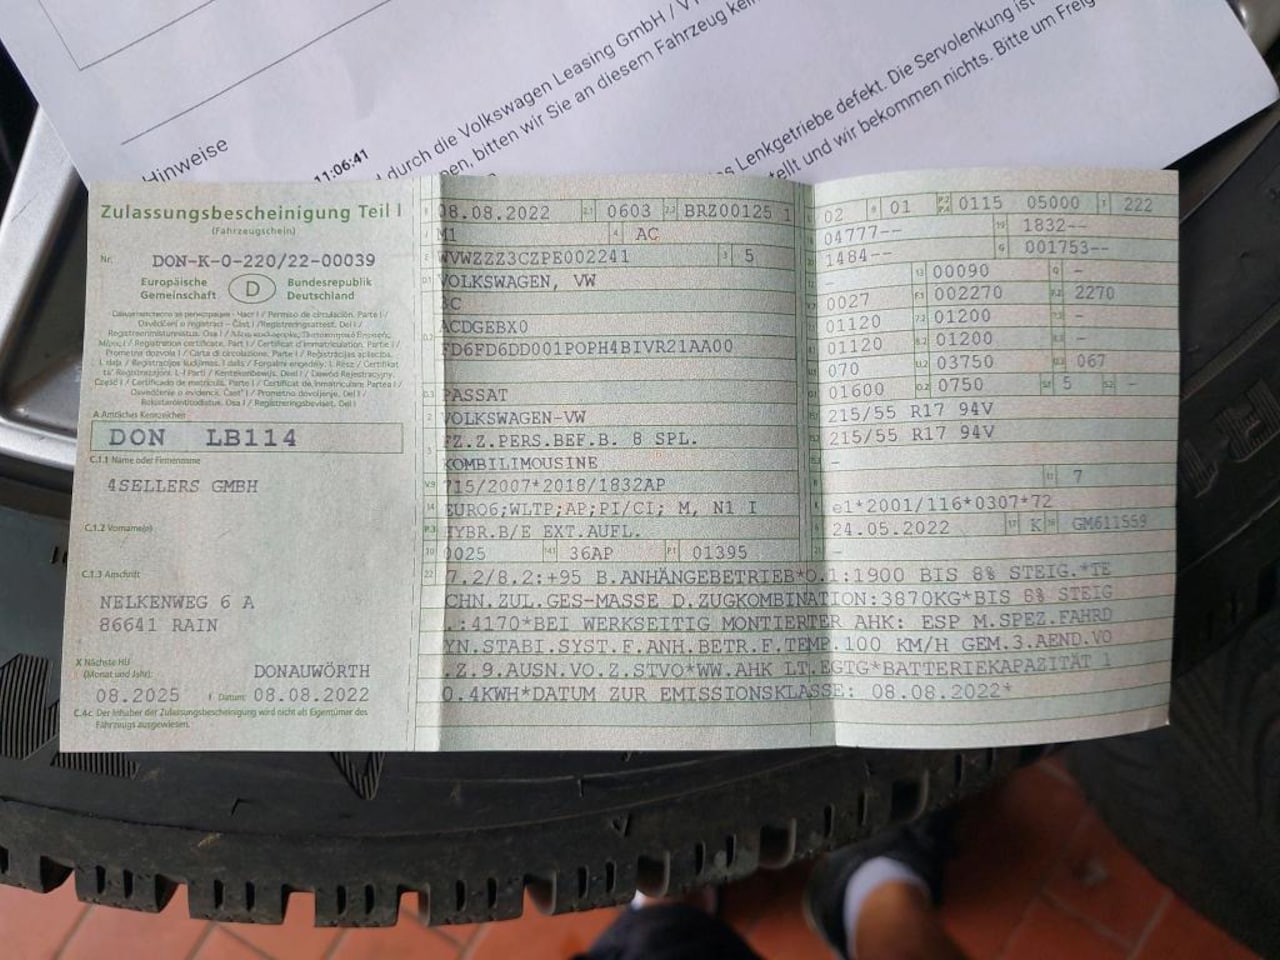 Hinweise
11:06:41
durch die Volkswagen Leasing GmbH /
bitten wir Sie an diesem Fahrzeug
Lenkgetriebe defekt. Die Servolenkung ist
und wir bekommen nichts. Bitte um
Zulassungsbescheinigung Teil I
(Fahrzeugschein)
Nr. DON-K-0-220/22-00039
Europäische Gemeinschaft D Bundesrepublik Deutschland
A Amtliches Kennzeichen
DON LB114
C.1.1 Name oder Firmenname
4SELLERS GMBH
C.1.2 Vorname(n)
C.1.3 Anschrift
NELKENWEG 6 A
86641 RAIN
X Nächste HU
(Monat und Jahr): DONAUWÖRTH
08.2025 I Datum: 08.08.2022
C.4c Der Inhaber der Zulassungsbescheinigung wird nicht als Eigentümer des
Fahrzeugs ausgewiesen.
08.08.2022 2.1 0603 2.2 BRZ00125 1
M1 4 AC
E WVWZZZ3CZPE002241 3 5
D.1 VOLKSWAGEN, VW
3C
ACDGEBX0
FD6FD6DD001POPH4BIVR21AA00
D.3 PASSAT
2 VOLKSWAGEN-VW
FZ.Z.PERS.BEF.B. 8 SPL.
5 KOMBILIMOUSINE
V.9 715/2007*2018/1832AP
14 EURO6;WLTP;AP;PI/CI; M, N1 I
P.3 HYBR.B/E EXT.AUFL.
10 0025 14.1 36AP P.1 01395
02 9 01 0115 05000 T 222
04777-- 19 1832--
1484-- G 001753--
- 13 00090 Q -
0027 F.1 002270 F.2 2270
01120 7.2 01200 -
01120 8.2 01200 -
070 U.2 03750 U.3 067
01600 O.2 0750 S.1 5 S.2 -
215/55 R17 94V
215/55 R17 94V
-
7
K e1*2001/116*0307*72
6 24.05.2022 17 K 16 GM611559
-
22 7.2/8.2:+95 B.ANHÄNGEBETRIEB*O.1:1900 BIS 8% STEIG.*TE
CHN.ZUL.GES-MASSE D.ZUGKOMBINATION:3870KG*BIS 8% STEIG
.:4170*BEI WERKSEITIG MONTIERTER AHK: ESP M.SPEZ.FAHRD
YN.STABI.SYST.F.ANH.BETR.F.TEMP.100 KM/H GEM.3.AEND.VO
.Z.9.AUSN.VO.Z.STVO*WW.AHK LT.EGTG*BATTERIEKAPAZITÄT 1
0.4KWH*DATUM ZUR EMISSIONSKLASSE: 08.08.2022*